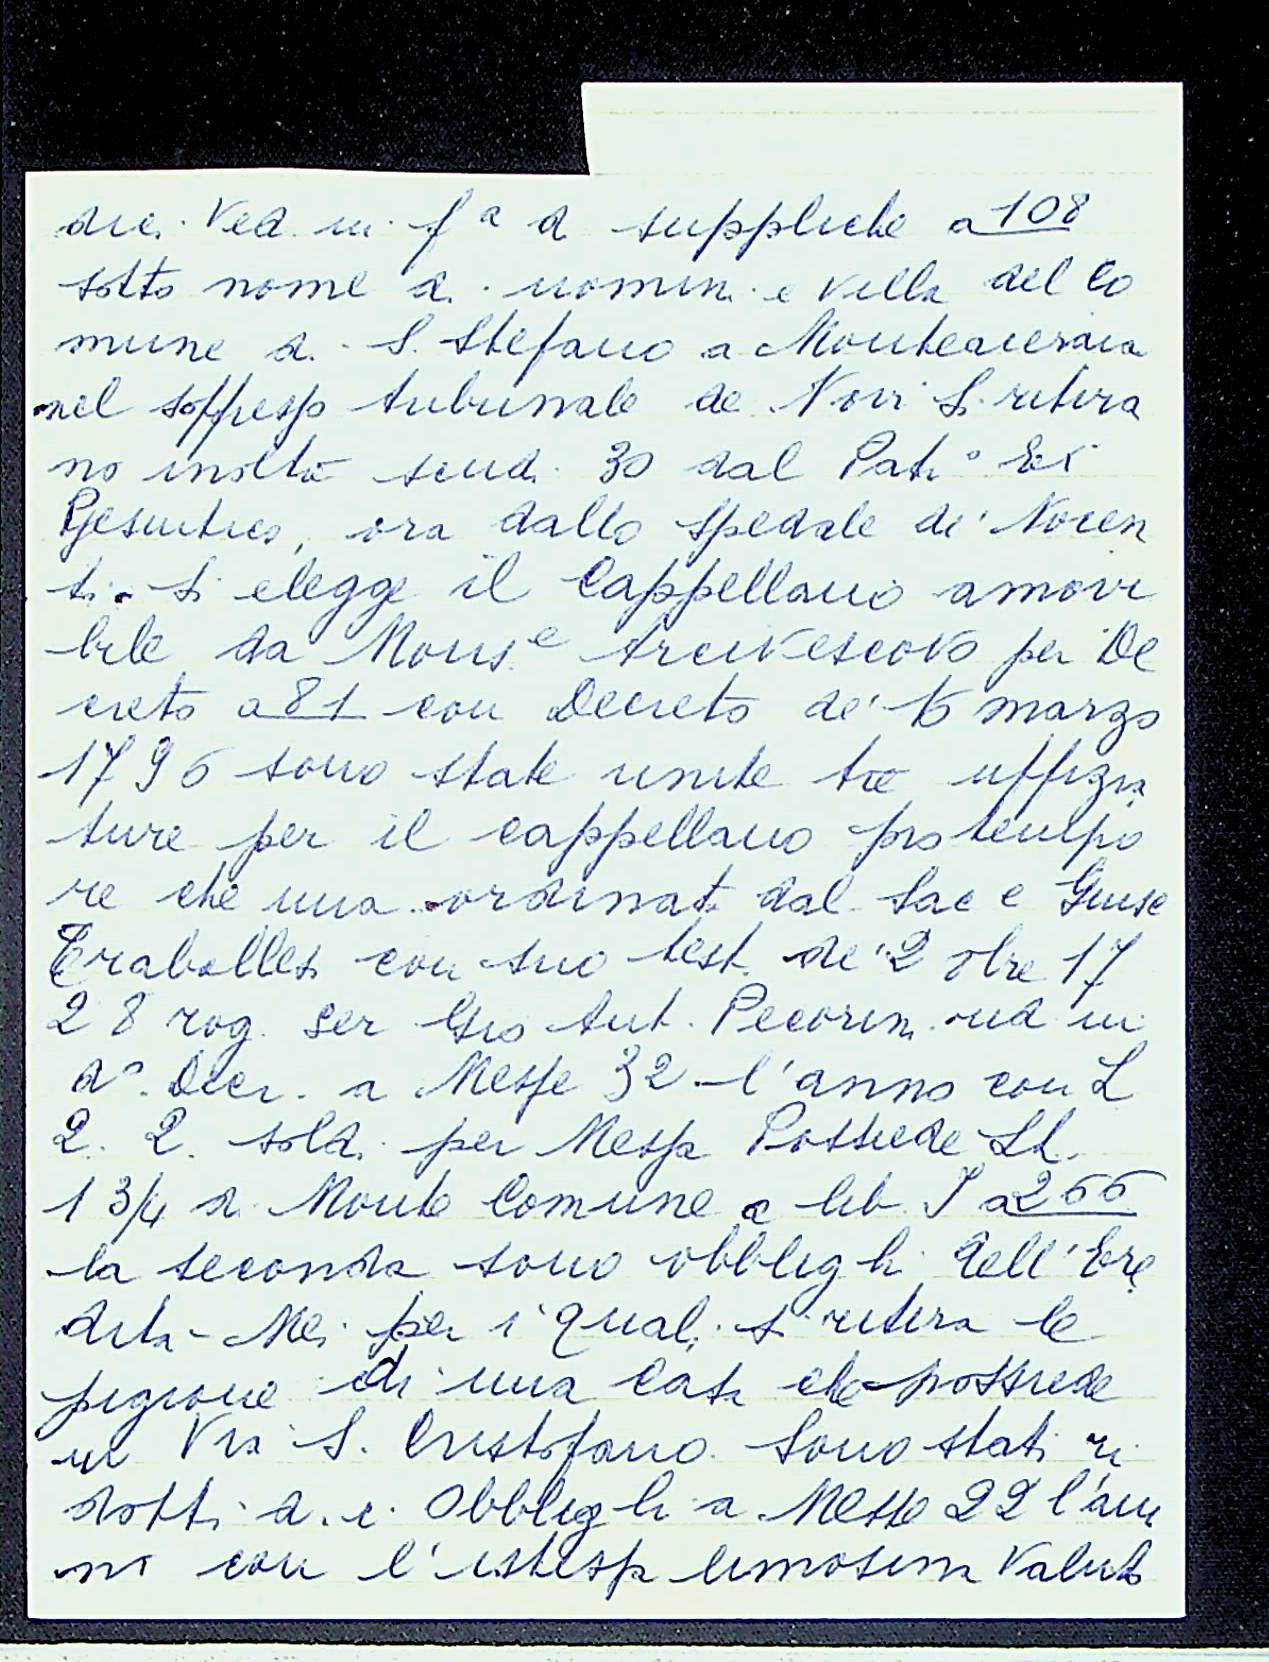 dici. Ved. in f.a di suppliche a 108
sotto nome di uomini e villa del Co
mune di S. Stefano a Monteaceraia
nel soppresso tribunale de Nove Si ritira
no inoltre scudi 30 dal Pat.o Ex
Gesuitico, ora dallo Spedale de' Nocen
ti. Si elegge il Cappellano amovi
bile da Mons.e Arcivescovo per De
creto a 81 con Decreto de' 15 marzo
1796 sono state unite tre uffizia
ture per il cappellano pro tempo
re che una ordinata dal Sac e Giuse
Traballesi con suo test. de' 2 8bre 17
28 rog. Ser Gio Ant. Pecorini rid in
d.o Decr. a Messe 32 l'anno con L
2. 2. soldi per Messa Possiede LL.
1 3/4 di Monte Comune a lib. I a 266
la seconda sono obblighi dell'Ere
dità Mei per i quali si ritira le
pigione di una casa che possiede
in Via S. Cristofano. Sono stati ri
dotti d. i. Obblighi a Messe 22 l'an
no con l'istessa limosina Valuta